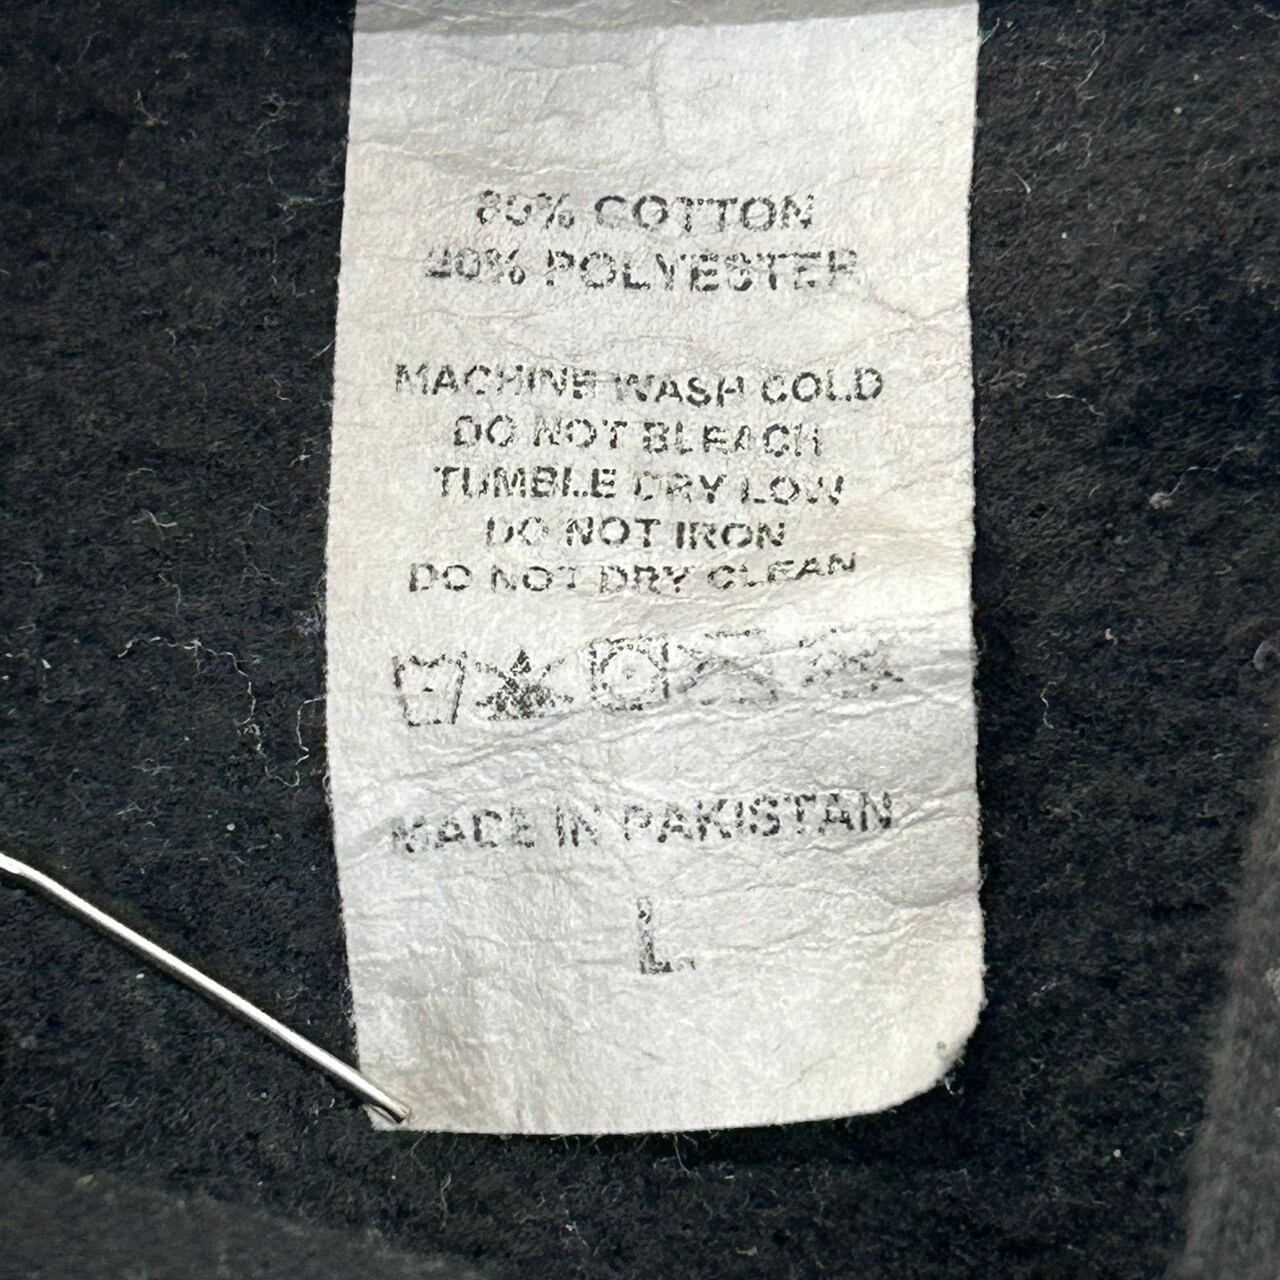 80% COTTON
20% POLYESTER
MACHINE WASH COLD
DO NOT BLEACH
TUMBLE DRY LOW
DO NOT IRON
DO NOT DRY CLEAN
MADE IN PAKISTAN
L